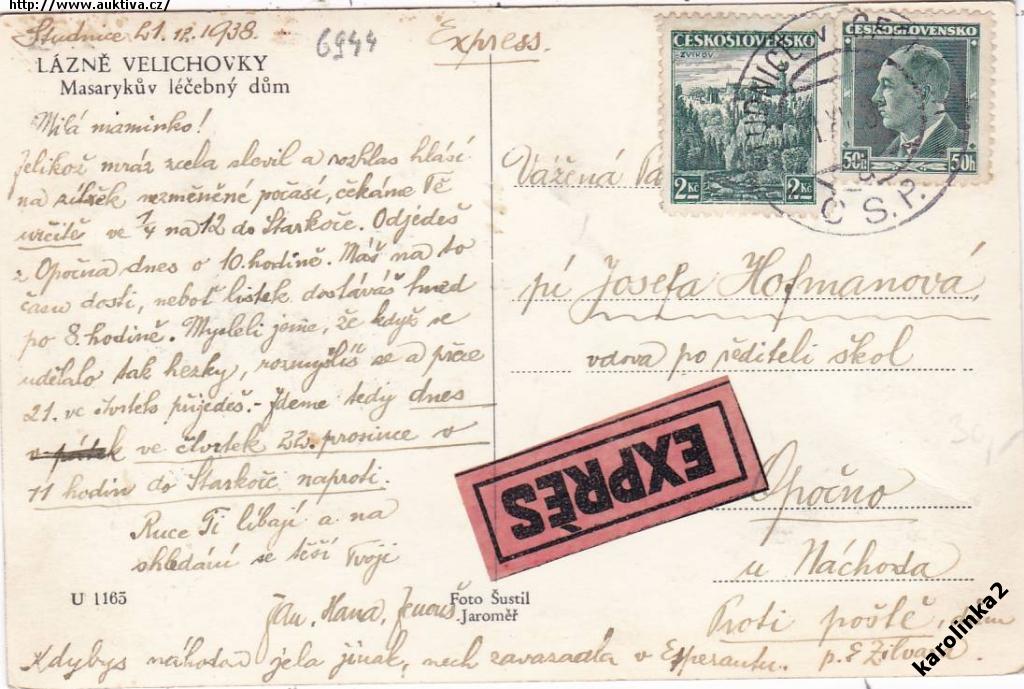 http://www.auktiva.cz/
Studnice 21.12.1938.
6944
Express.
LÁZNĚ VELICHOVKY
Masarykův léčebný dům
Milá maminko!
Jelikož mráz zcela slevil a rozhlas hlásí
na zítřek nezměněné počasí, čekáme Tě
určitě ve ¾ na 12 do Starkoče. Odjedeš
z Opočna dnes o 10. hodině. Máš na to
času dosti, neboť lístek dostáváš hned
po 8. hodině. Mysleli jsme, že když se
udělalo tak hezky, rozmyslíš se a přece
21. ve čtvrtek přijedeš. - Jdeme tedy dnes
v pátek ve čtvrtek 22. prosince v
11 hodin do Starkoče naproti.
Ruce Ti líbají a na
shledání se těší Tvoji
Jan, Hana,
U 1165
Foto Šustil
Jaroměř
Kdybys náhodou jela jinak, nech zavazadla v Esperantu.
ČESKOSLOVENSKO
ZVÍKOV
2 Kč 2 Kč
ČESKOSLOVENSKO
50h 50h
Č.S.P.
Vážená
pí Josefa Hofmanová,
vdova po řediteli škol
EXPRÈS
Opočno
u Náchoda
Proti poště, dům
p.
karolinka2